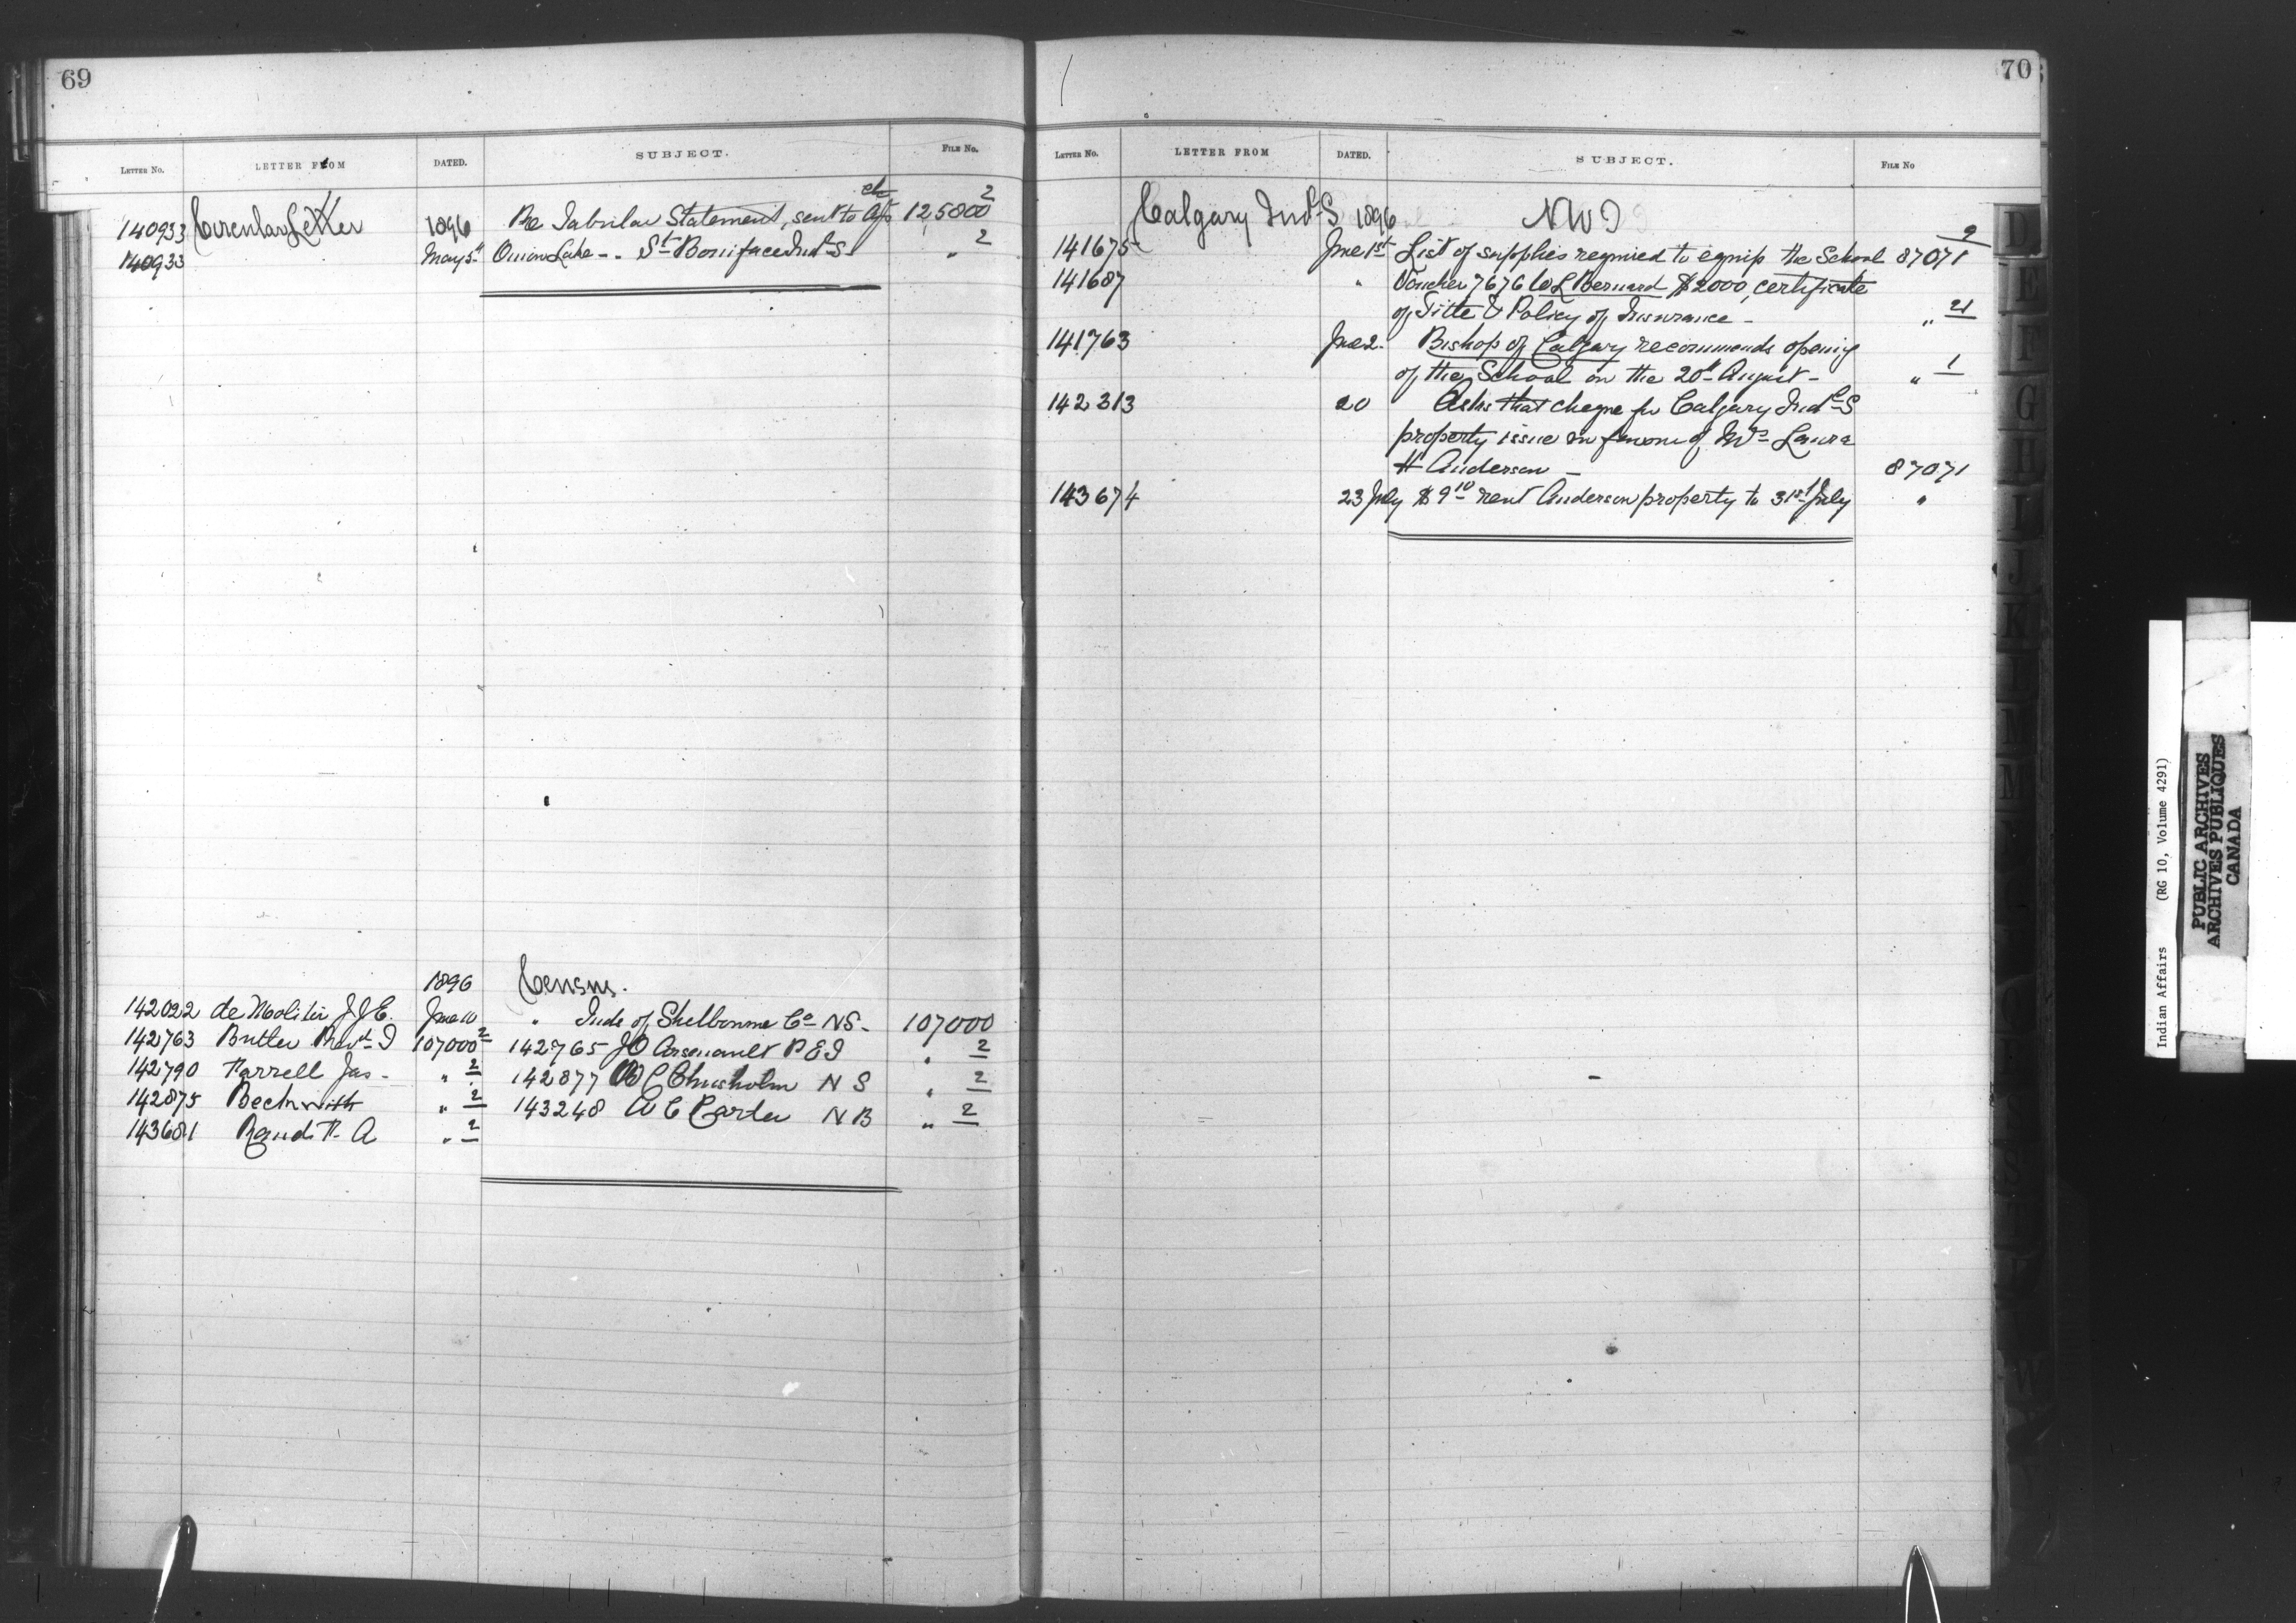 69
LETTER No. LETTER FROM DATED. SUBJECT. FILE No.
140933 Circular Letter 1896 Re Tabular Statement, sent to Agts 125800 2
140933 May 5th Onion Lake - . St Boniface Indl S. " 2
1896 Census.
142022 de Molitor J J E. June 10 " Inds of Shelbourne Co NS - 107000
142763 Butler Revd I 107000 2 142765 J O Arsenault P E I " 2
142790 Farrell Jas - " 2 142877 W C Chisholm N S " 2
142875 Beckwith " 2 143248 W C Carter N B " 2
143681 Rand F. A " 2
70
LETTER No. LETTER FROM DATED. SUBJECT. FILE No
Calgary Indl S 1896 NWT
141675 June 1st List of supplies required to equip the School 87071 2
141687 " Voucher 7676 W L Bernard $2000, certificate
of Title & Policy of Insurance - " 21
141763 June 2. Bishop of Calgary recommends opening
of the School on the 20th August - " 1
142313 20 Asks that cheque for Calgary Indl S
property issue in favour of Mrs Laura
H Anderson - 87071
143674 23 July $9 10 rent Anderson property to 31st July "
D
E
F
G
H
I
J
K
L
M
Indian Affairs (RG 10, Volume 4291)
PUBLIC ARCHIVES
ARCHIVES PUBLIQUES
CANADA